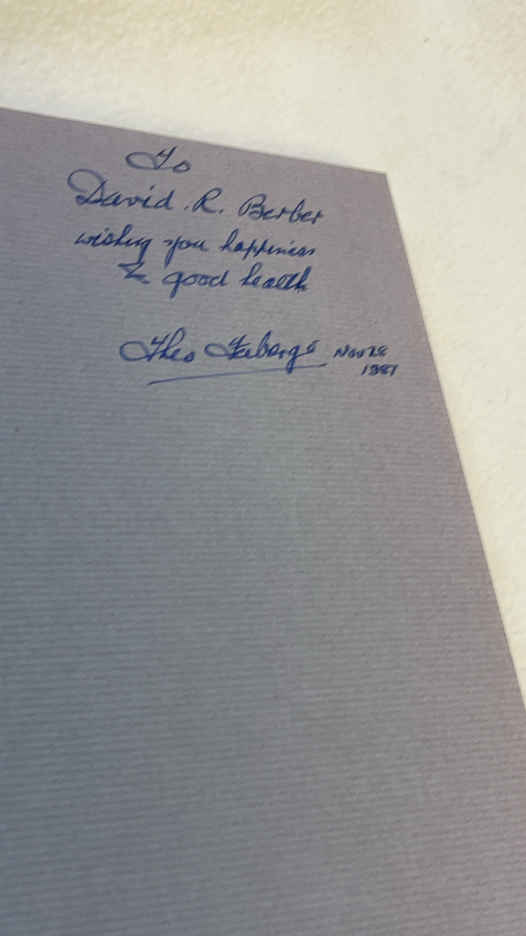 To
David. R. Berber
wishing you happiness
& good health
Theo Faberge Nov 28
1987